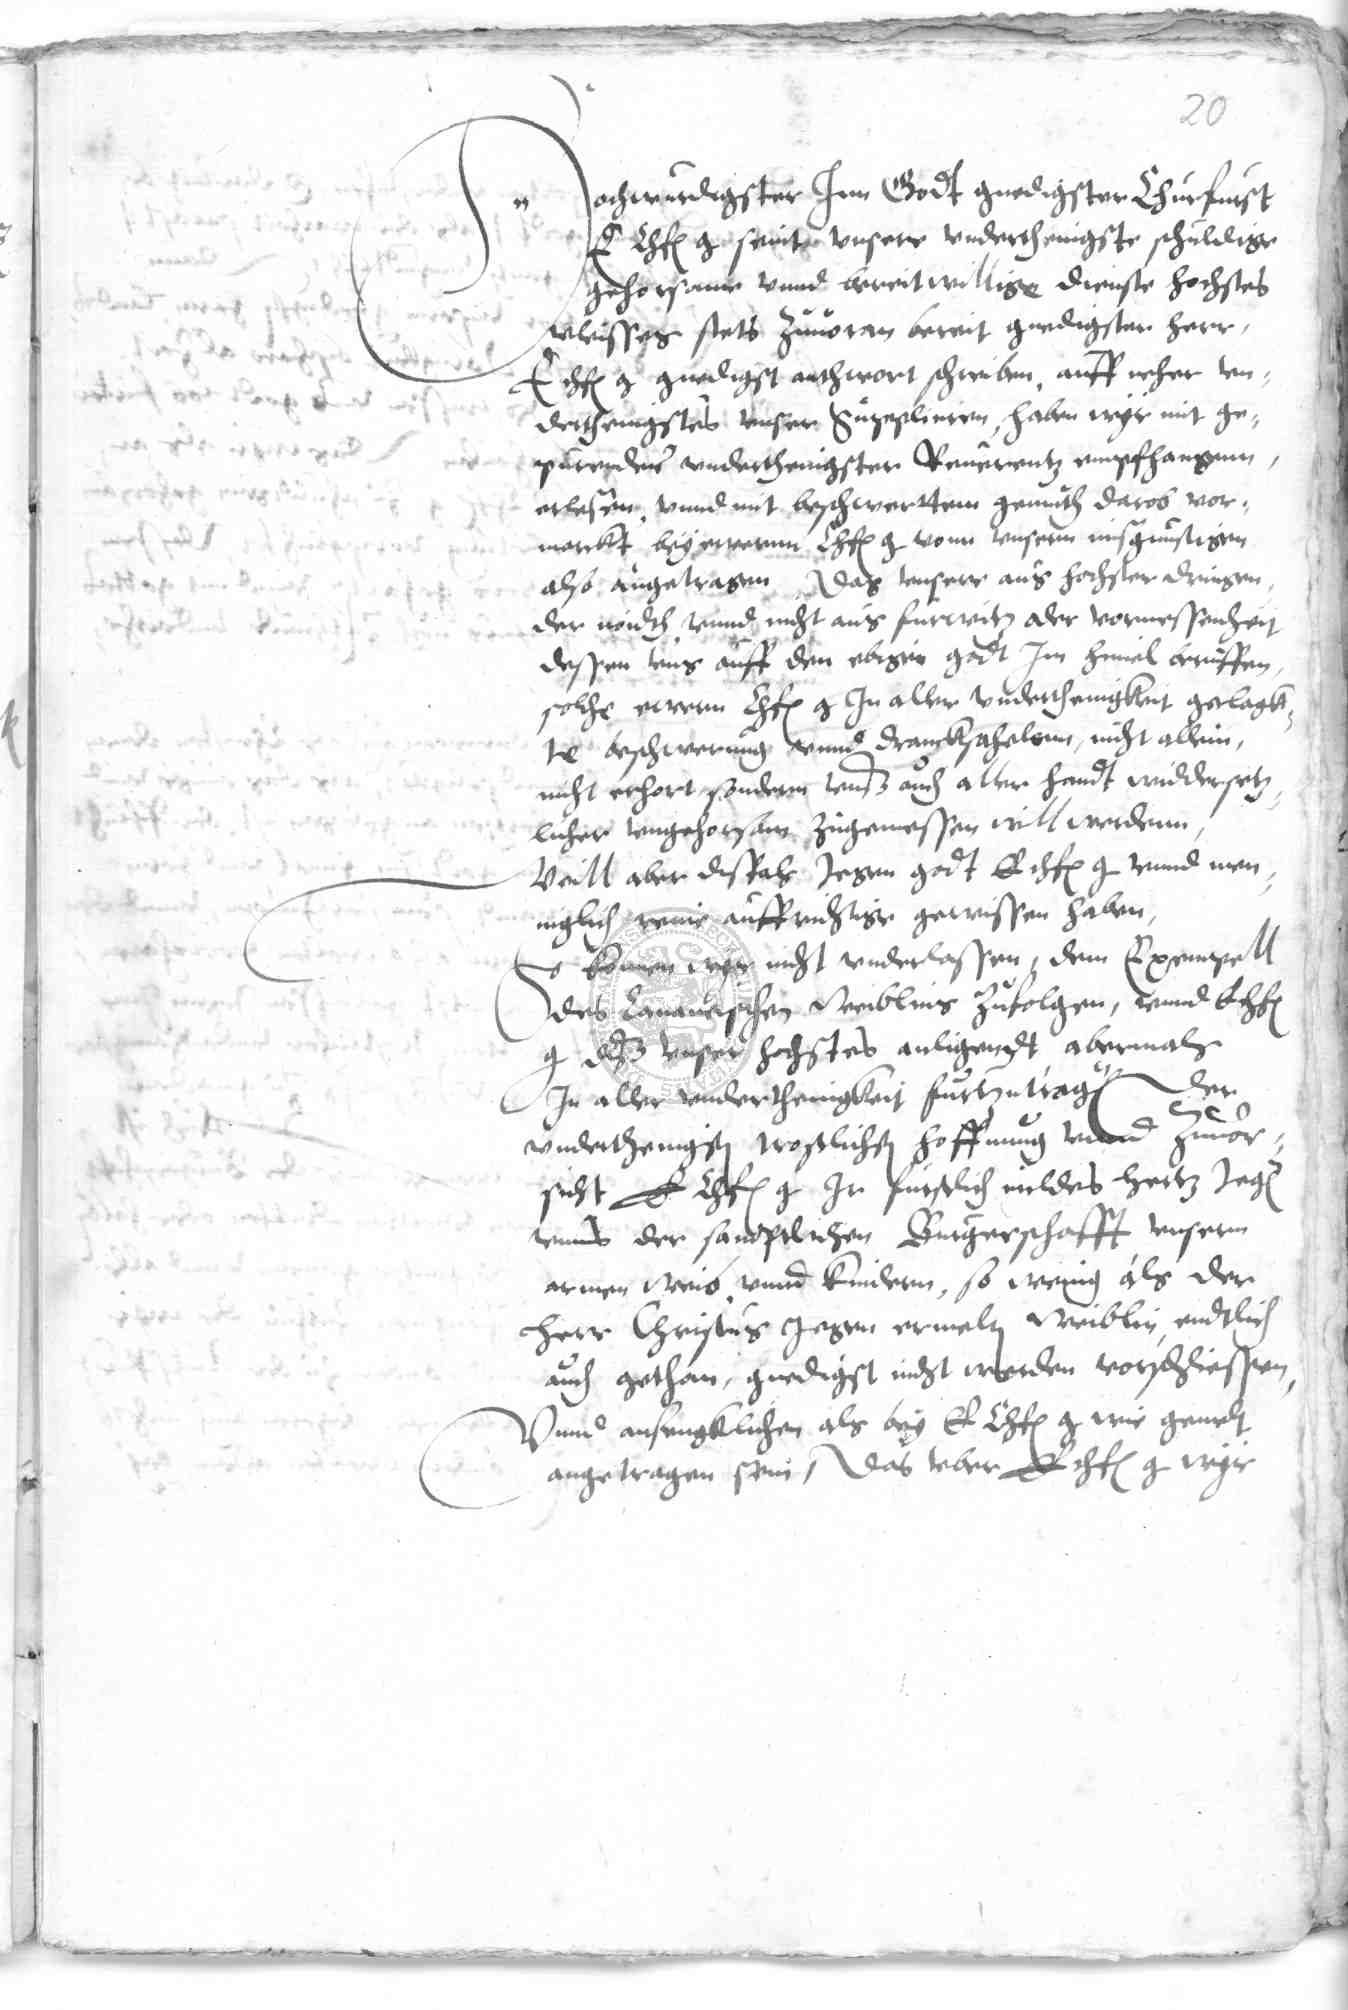 20
Hochwurdigster Inn Godt gnedigster Churfurst
E Chf g seint unsere underthenigste schuldige
gehorsame unnd bereitwillige dienste hochstes
vleisses stets zuuoran bereit gnedigster herr,
E chf g gnedigst anthwort schreiben, auff unser un-
derthenigstes unser Suppliciren, haben wyr mit ge-
purender underthenigster Reuerentz empfhangenn,
erlesen, unnd mit beschwerttem gemuth daros vor-
marckt bey ewernn Chf g vonn unsern misgunstigen
also angetragen, Das unsere aus hochster dringen-
der noidth, unnd nicht aus furwitz ader vormessenheit
dessen uns auff den ebigen godt Im himel beruffen,
solche ewern Chf g In aller underthenigkeit geclagk-
te beschwerung unnd drancksahelenn, nicht allein,
nicht erhort sondern uns auch aller handt widdersetz-
licher ungehorsam zugemessen will werdenn,
Weill aber disfals Jegen godt E chf g unnd men-
niglich reine auffrichtige gewissen haben,
So konnen wyr nicht underlassen, dem Exempell
des Cananeischen Weiblins zufolgen, unnd E chf
g dis unser hochstes anligendt abermals
In aller underthenigkeit furtzutragen Der
underthenigsten trostlichsten hoffnung unnd Zuuor-
sicht E Chf g Ir furstlich mildes hertz Jegen
unns der samptlichen Burgerschafft unsern
armen Weib, unnd kindern, so wenig als der
herr Christus Jegen ermeltem Weiblin, endtlich
auch gethan, gnedigst nicht werden vorschliessen,
Unnd anfengklichen als bey E Chf g wie gemelt
angetragen sein, Das uber E chf g wyr